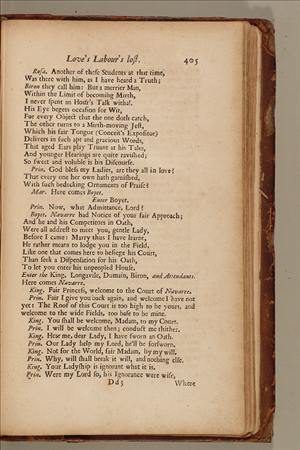 Love's Labour's lost. 405
Rosa. Another of these Students at that time,
Was there with him, as I have heard a Truth;
Biron they call him: But a merrier Man,
Within the Limit of becoming Mirth,
I never spent an Hour's Talk withal.
His Eye begets occasion for Wit,
For every Object that the one doth catch,
The other turns to a Mirth-moving Jest,
Which his fair Tongue (Conceit's Expositor)
Delivers in such apt and gracious Words,
That aged Ears play Truant at his Tales,
And younger Hearings are quite ravished;
So sweet and voluble is his Discourse.
Prin. God bless my Ladies, are they all in love?
That every one her own hath garnished,
With such bedecking Ornaments of Praise?
Mar. Here comes Boyet.
Enter Boyet.
Prin. Now, what Admittance, Lord?
Boyet. Navarre had Notice of your fair Approach;
And he and his Competitors in Oath,
Were all addrest to meet you, gentle Lady,
Before I came: Marry thus I have learnt,
He rather means to lodge you in the Field,
Like one that comes here to besiege his Court,
Than seek a Dispensation for his Oath,
To let you enter his unpeopled House.
Enter the King, Longavile, Dumain, Biron, and Attendants.
Here comes Navarre.
King. Fair Princess, welcome to the Court of Navarre.
Prin. Fair I give you back again, and welcome I have not
yet: The Roof of this Court is too high to be yours, and
welcome to the wide Fields, too base to be mine.
King. You shall be welcome, Madam, to my Court.
Prin. I will be welcome then; conduct me thither.
King. Hear me, dear Lady, I have sworn an Oath.
Prin. Our Lady help my Lord, he'll be forsworn.
King. Not for the World, fair Madam, by my will.
Prin. Why, will shall break it will, and nothing else.
King. Your Ladyship is ignorant what it is.
Prin. Were my Lord so, his Ignorance were wise,
Dd3 Where